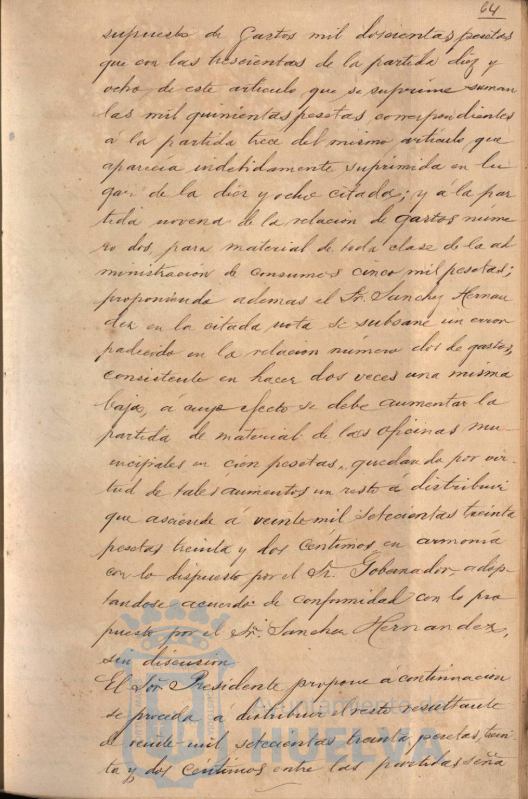 64
supuesto de gastos mil doscientas pesetas
que con las trescientas de la partida diez y
ocho de este articulo que se suprime suman
las mil quinientas pesetas correspondientes
á la partida trece del mismo artículo que
aparecía indebidamente suprimida en lu
gar de la diez y ocho citada; y á la par
tida novena de la relacion de gastos núme
ro dos, para material de toda clase de la ad
ministración de consumos cinco mil pesetas;
proponiendo ademas el Sr. Sanchez Hernan
dez en la citada nota se subsane un error
padecido en la relacion número dos de gastos,
consistente en hacer dos veces una misma
baja, á cuyo efecto se debe aumentar la
partida de material de las oficinas mu
nicipales en cien pesetas, quedando por vir
tud de tales aumentos un resto á distribuir
que asciende á veinte mil setecientas treinta
pesetas treinta y dos céntimos en armonía
con lo dispuesto por el Sr. Gobernador, adop
tandose acuerdo de conformidad con lo pro
puesto por el Sr. Sanchez Hernandez,
sin discusion.
El Sor. Presidente propone á continuacion
se proceda á distribuir el resto resultante
de veinte mil setecientas treinta pesetas, trein
ta y dos céntimos entre las partidas seña
Ayuntamiento de
HUELVA